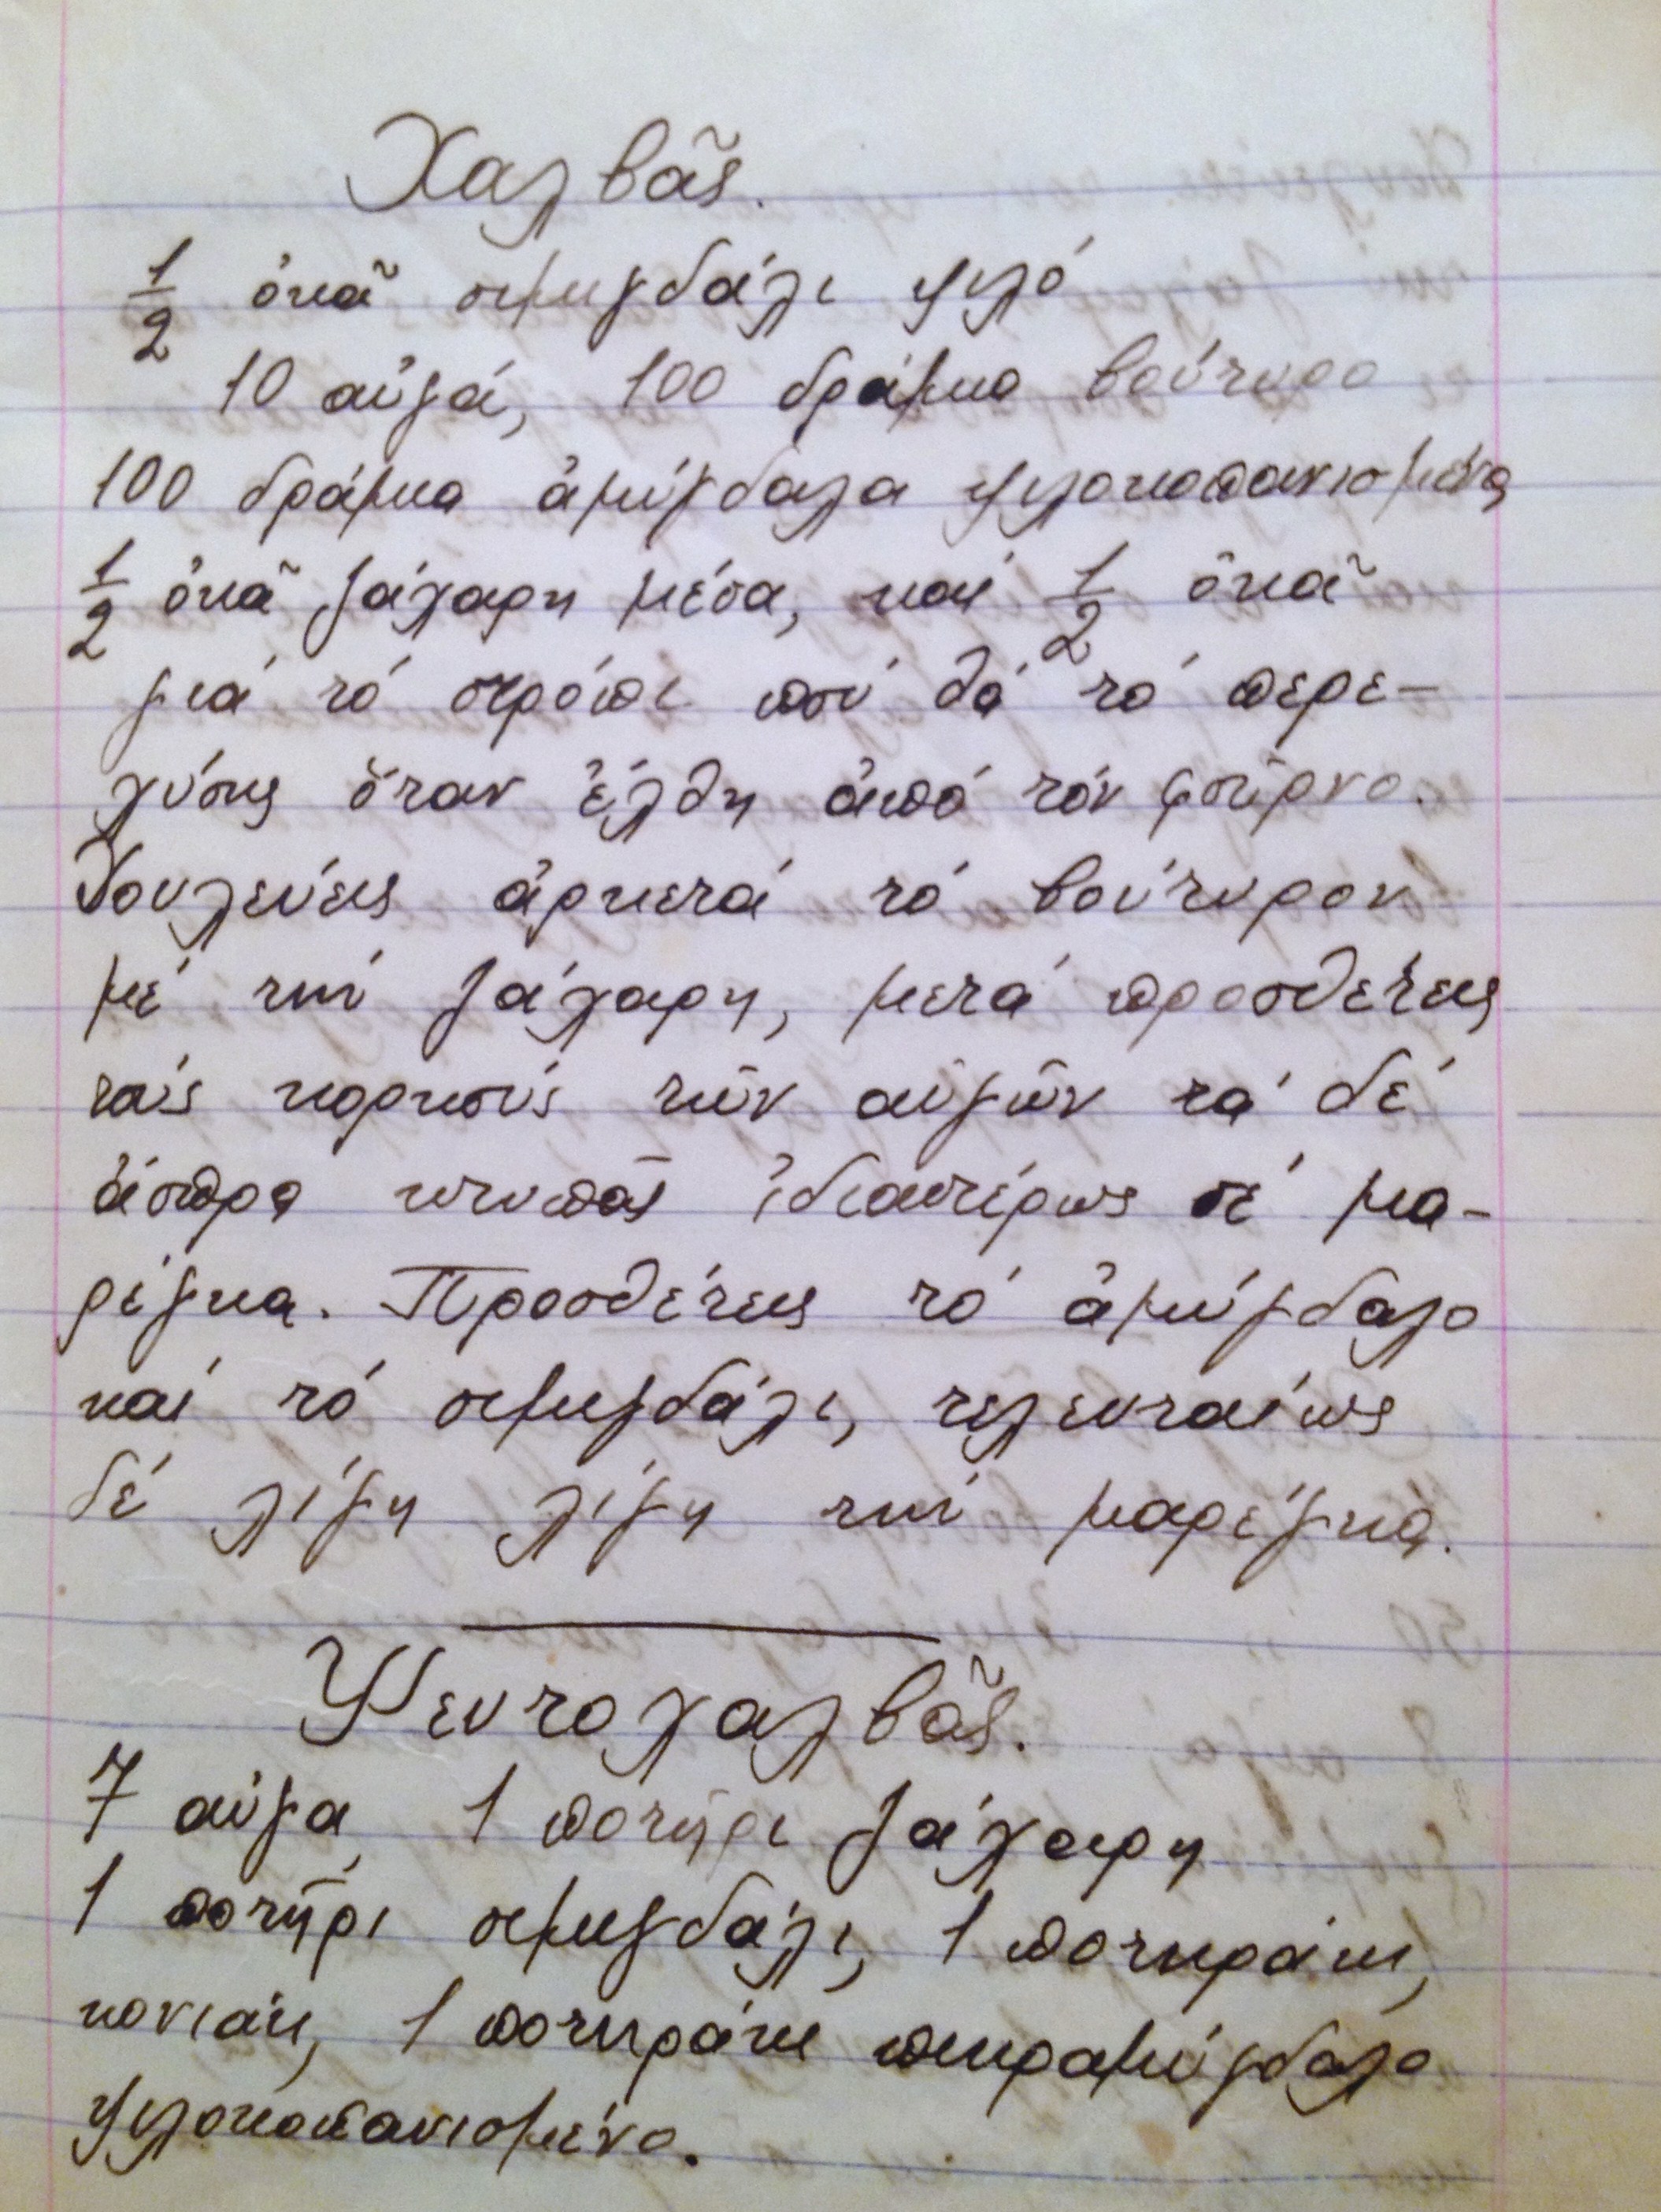 Χαλβᾶς.
1/2 ὀκᾶ σιμιγδάλι ψιλό
10 αὐγά, 100 δράμια βούτυρο
100 δράμια ἀμύγδαλα ψιλοκοπανισμένα
1/2 ὀκᾶ ζάχαρη μέσα, καί 1/2 ὀκᾶ
γιά τό σιρόπι πού θά τό περε-
χύσης ὅταν ἔλθη ἀπό τόν φοῦρνο.
Δουλεύεις ἀρκετά τό βούτυρον
μέ τήν ζάχαρη, μετά προσθέτεις
τούς κορκούς τῶν αὐγῶν τά δέ
ἄσπρα κτυπᾶς ἰδιαιτέρως σέ μα-
ρέγκα. Προσθέτεις τό ἀμύγδαλο
καί τό σιμιγδάλι, τελευταίως
δέ λίγη λίγη τήν μαρέγκα.
Ψευτοχαλβᾶς.
7 αὐγά 1 ποτῆρι ζάχαρη
1 ποτῆρι σιμιγδάλι, 1 ποτηράκι,
κονιάκ, 1 ποτηράκι πικραμύγδαλο
ψιλοκοπανισμένο.